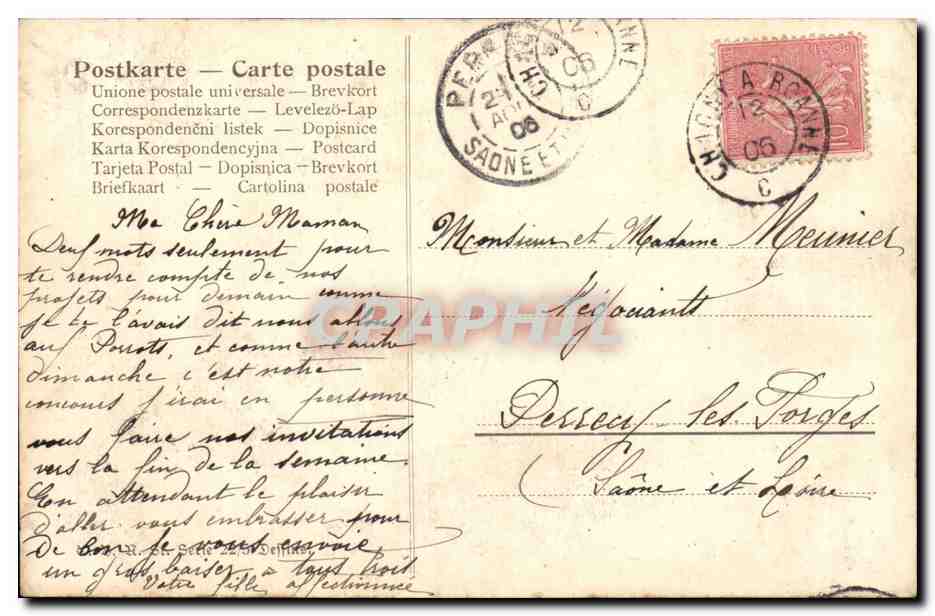 Postkarte — Carte postale
Unione postale universale — Brevkort
Correspondenzkarte — Levelező-Lap
Korespondenčni listek — Dopisnice
Karta Korespondencyjna — Postcard
Tarjeta Postal — Dopisnica — Brevkort
Briefkaart — Cartolina postale
Ma Chère Maman
Deux mots seulement pour
te rendre compte de nos
projets pour demain comme
je te l'avais dit nous allons
au Porrots, et comme l'autre
dimanche c'est notre
concours j'irai en personne
vous faire nos invitations
vers la fin de la semaine.
En attendant le plaisir
d'aller vous embrasser pour
de bon je vous envoie
Serie Dessins
un gros baiser à tous trois
Votre fille affectionnée
SAONE ET
06
12
06
C
CHAGNY A ROANNE
12
06
C
10
Monsieur et Madame Meunier
Négociants
Perrecy les Forges
Saône et Loire
CPAPHIL